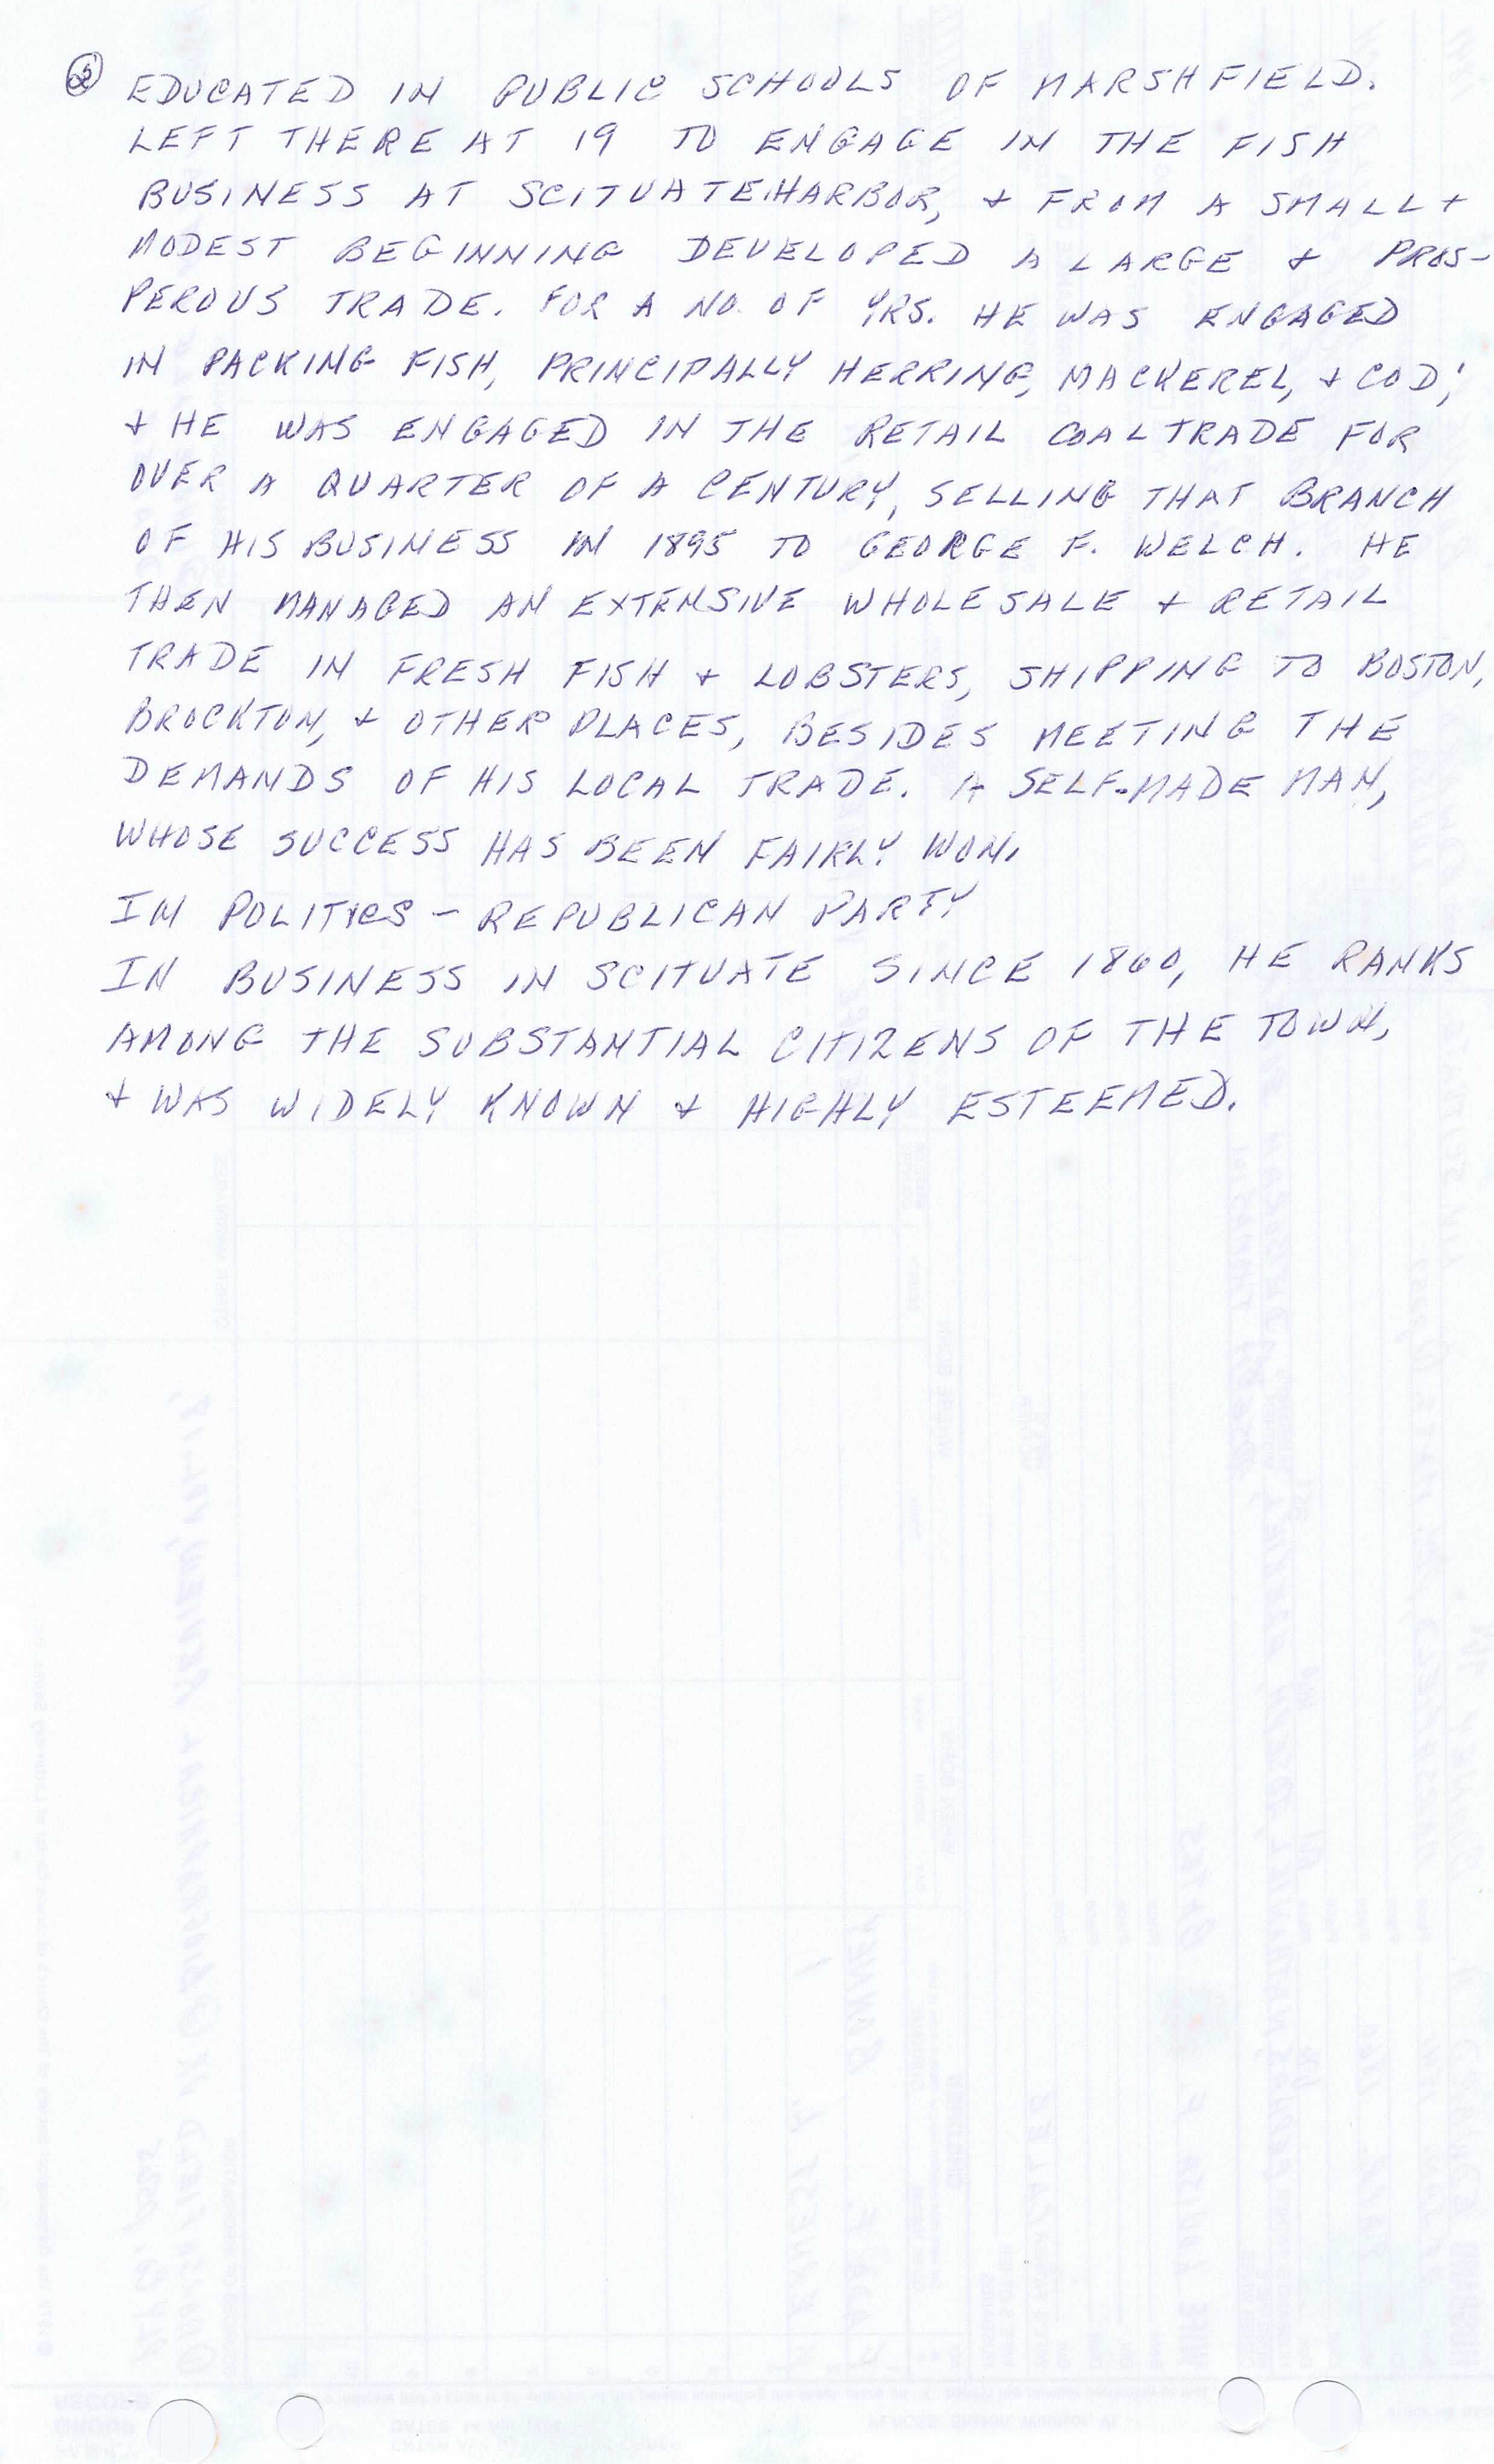 ② EDUCATED IN PUBLIC SCHOOLS OF MARSHFIELD.
LEFT THERE AT 19 TO ENGAGE IN THE FISH
BUSINESS AT SCITUATE HARBOR, + FROM A SMALL +
MODEST BEGINNING DEVELOPED A LARGE + PROS-
PEROUS TRADE. FOR A NO. OF YRS. HE WAS ENGAGED
IN PACKING FISH, PRINCIPALLY HERRING, MACKEREL, + COD;
+ HE WAS ENGAGED IN THE RETAIL COAL TRADE FOR
OVER A QUARTER OF A CENTURY, SELLING THAT BRANCH
OF HIS BUSINESS IN 1895 TO GEORGE F. WELCH. HE
THEN MANAGED AN EXTENSIVE WHOLESALE + RETAIL
TRADE IN FRESH FISH + LOBSTERS, SHIPPING TO BOSTON,
BROCKTON, + OTHER PLACES, BESIDES MEETING THE
DEMANDS OF HIS LOCAL TRADE. A SELF-MADE MAN,
WHOSE SUCCESS HAS BEEN FAIRLY WON.
IN POLITICS - REPUBLICAN PARTY
IN BUSINESS IN SCITUATE SINCE 1860, HE RANKS
AMONG THE SUBSTANTIAL CITIZENS OF THE TOWN,
+ WAS WIDELY KNOWN + HIGHLY ESTEEMED.